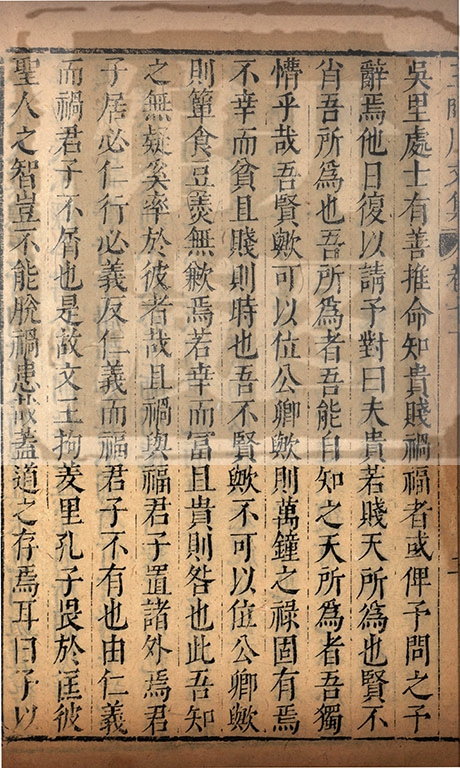 王臨川文集 卷七十
吳里處士有善推命知貴賤禍福者或俾予問之予
辭焉他日復以請予對曰夫貴若賤天所為也賢不
肖吾所為也吾所為者吾能自知之天所為者吾獨
懵乎哉吾賢歟可以位公卿歟則萬鐘之祿固有焉
不幸而貧且賤則時也吾不賢歟不可以位公卿歟
則簞食豆羹無歉焉若幸而富且貴則咎也此吾知
之無疑奚率於彼者哉且禍與福君子置諸外焉君
子居必仁行必義反仁義而福君子不有也由仁義
而禍君子不屑也是故文王拘羑里孔子畏於匡彼
聖人之智豈不能脫禍患哉蓋道之存焉耳曰子以